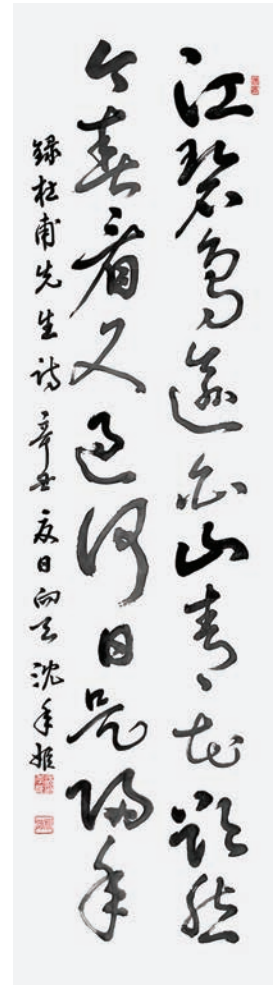 江碧鳥逾白山青花欲然
今春看又過何日是歸年
錄杜甫先生诗 辛丑夏日向 沈年姬